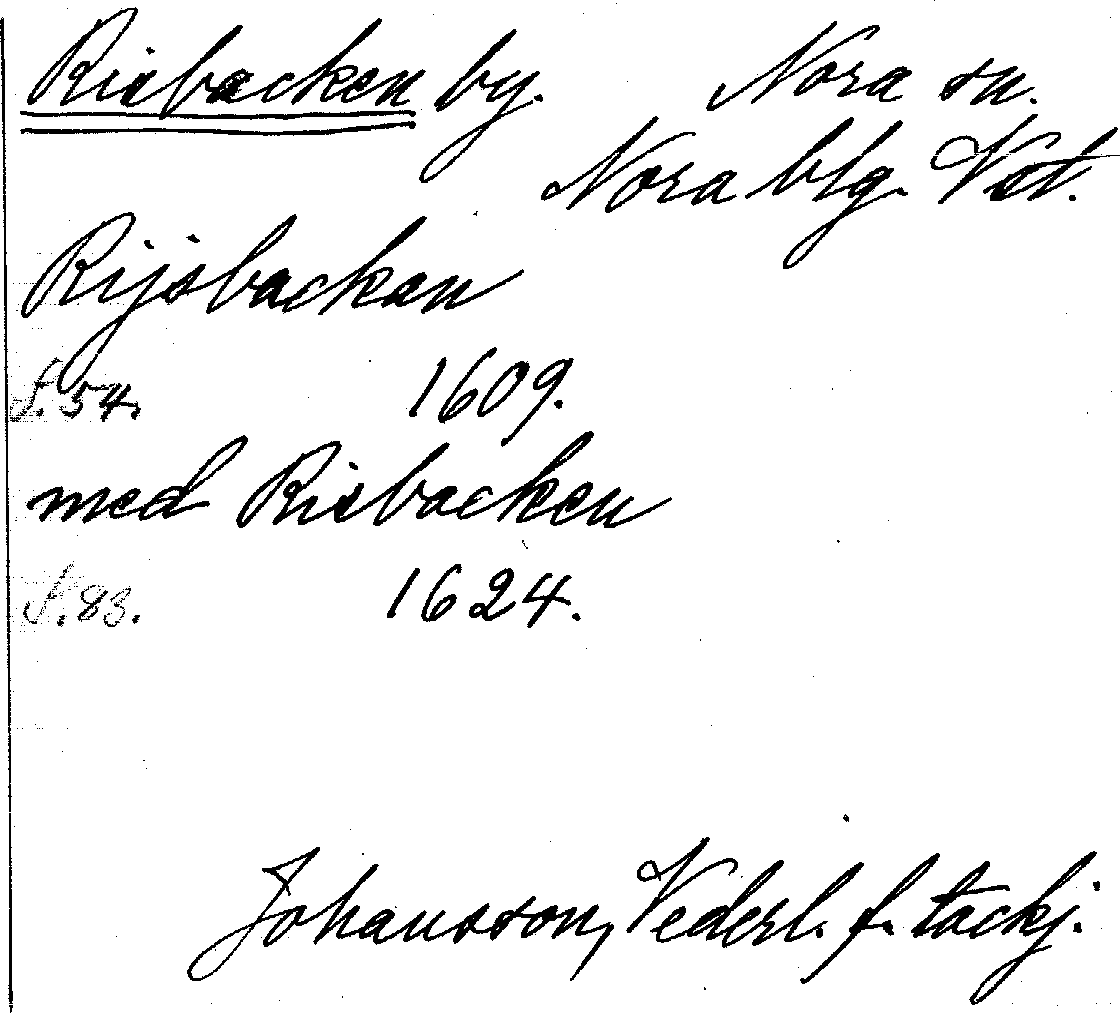 Risbacken by. Nora sn.
Nora blg. Vst.
Rijsbacken
S. 54. 1609.
med Risbacken
S. 83. 1624.
Johansson, Vederl. f. tackj.